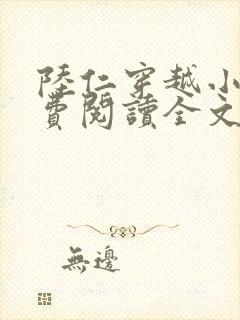 陸仁穿越小
費閱讀全文
無邊